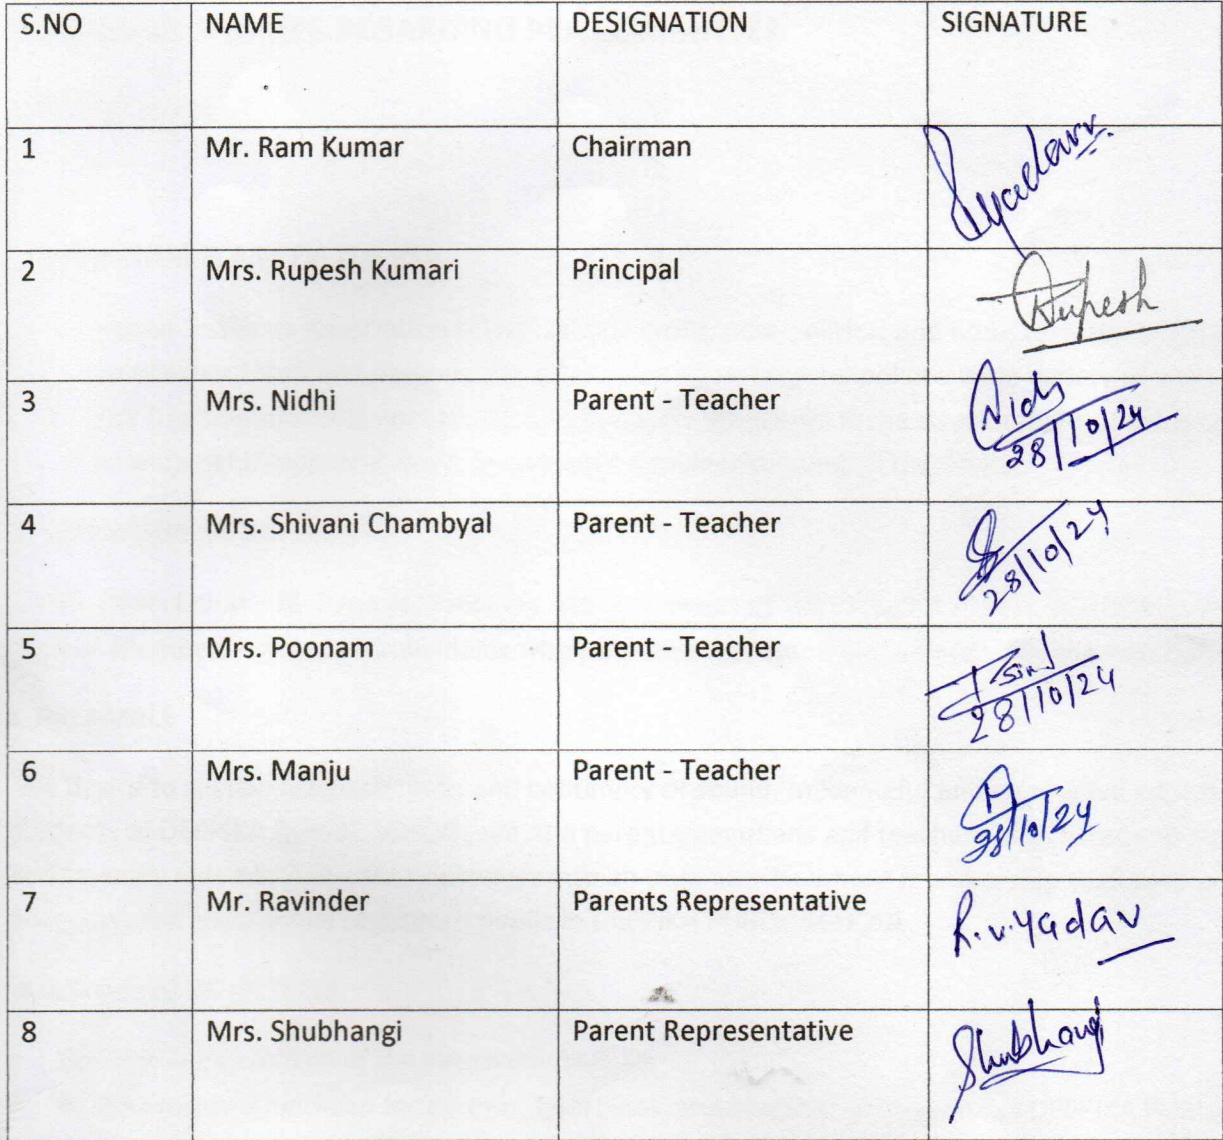 S.NO NAME DESIGNATION SIGNATURE
1 Mr. Ram Kumar Chairman
2 Mrs. Rupesh Kumari Principal Rupesh
3 Mrs. Nidhi Parent - Teacher Nidhi
28/10/24
4 Mrs. Shivani Chambyal Parent - Teacher
28/10/24
5 Mrs. Poonam Parent - Teacher
28/10/24
6 Mrs. Manju Parent - Teacher
28/10/24
7 Mr. Ravinder Parents Representative R.v.Yadav
8 Mrs. Shubhangi Parent Representative Shubhangi